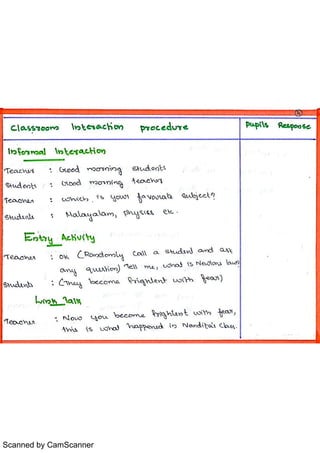 Classroom Interaction procedure
Pupil's Response
Informal Interaction
Teacher : Good morning students
Students : Good morning teacher
Teacher : Which is your favourate subject?
Students : Malayalam, physics etc.
Entry Activity
Teacher : OK (Randomly call a student and ask
any question) Tell me, what is Newtons law?
Students : (They become frightent with fear)
Link Talk
Teacher : Now you become frightent with fear,
this is what happened in Nandita's class.
Scanned by CamScanner